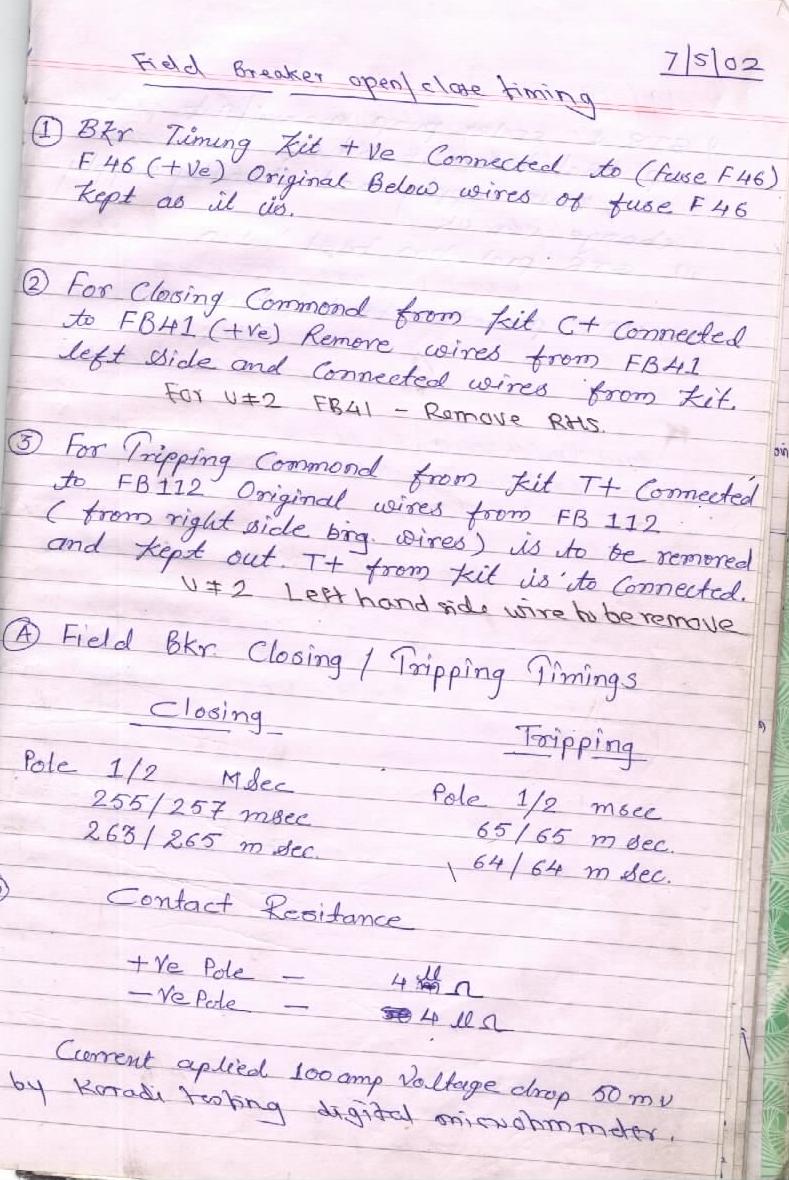 7/5/02
Field Breaker open/close timing
① Bkr Timing Kit +ve Connected to (fuse F46)
F46 (+ve) Original Below wires of fuse F46
Kept as it is.
② For Closing Commond from Kit C+ Connected
to FB41 (+ve) Remove wires from FB41
left side and Connected wires from Kit.
For U#2 FB41 - Remove RHS.
③ For Tripping Commond from Kit T+ Connected
to FB112 Original wires from FB 112
(from right side wires) is to be removed
and Kept out. T+ from Kit is to Connected.
U#2 Left hand side wire to be remove
Ⓐ Field Bkr. Closing / Tripping Timings
Closing
Tripping
Pole 1/2 MSec
Pole 1/2 msec
255/257 msec
65/65 m sec.
263/265 m sec.
64/64 m sec.
Contact Resitance
+ve Pole – 4 µ Ω
-ve Pole – 4 µΩ
Current aplied 100 amp Voltage drop 50 mv
by Koradi testing digital microhmmeter.